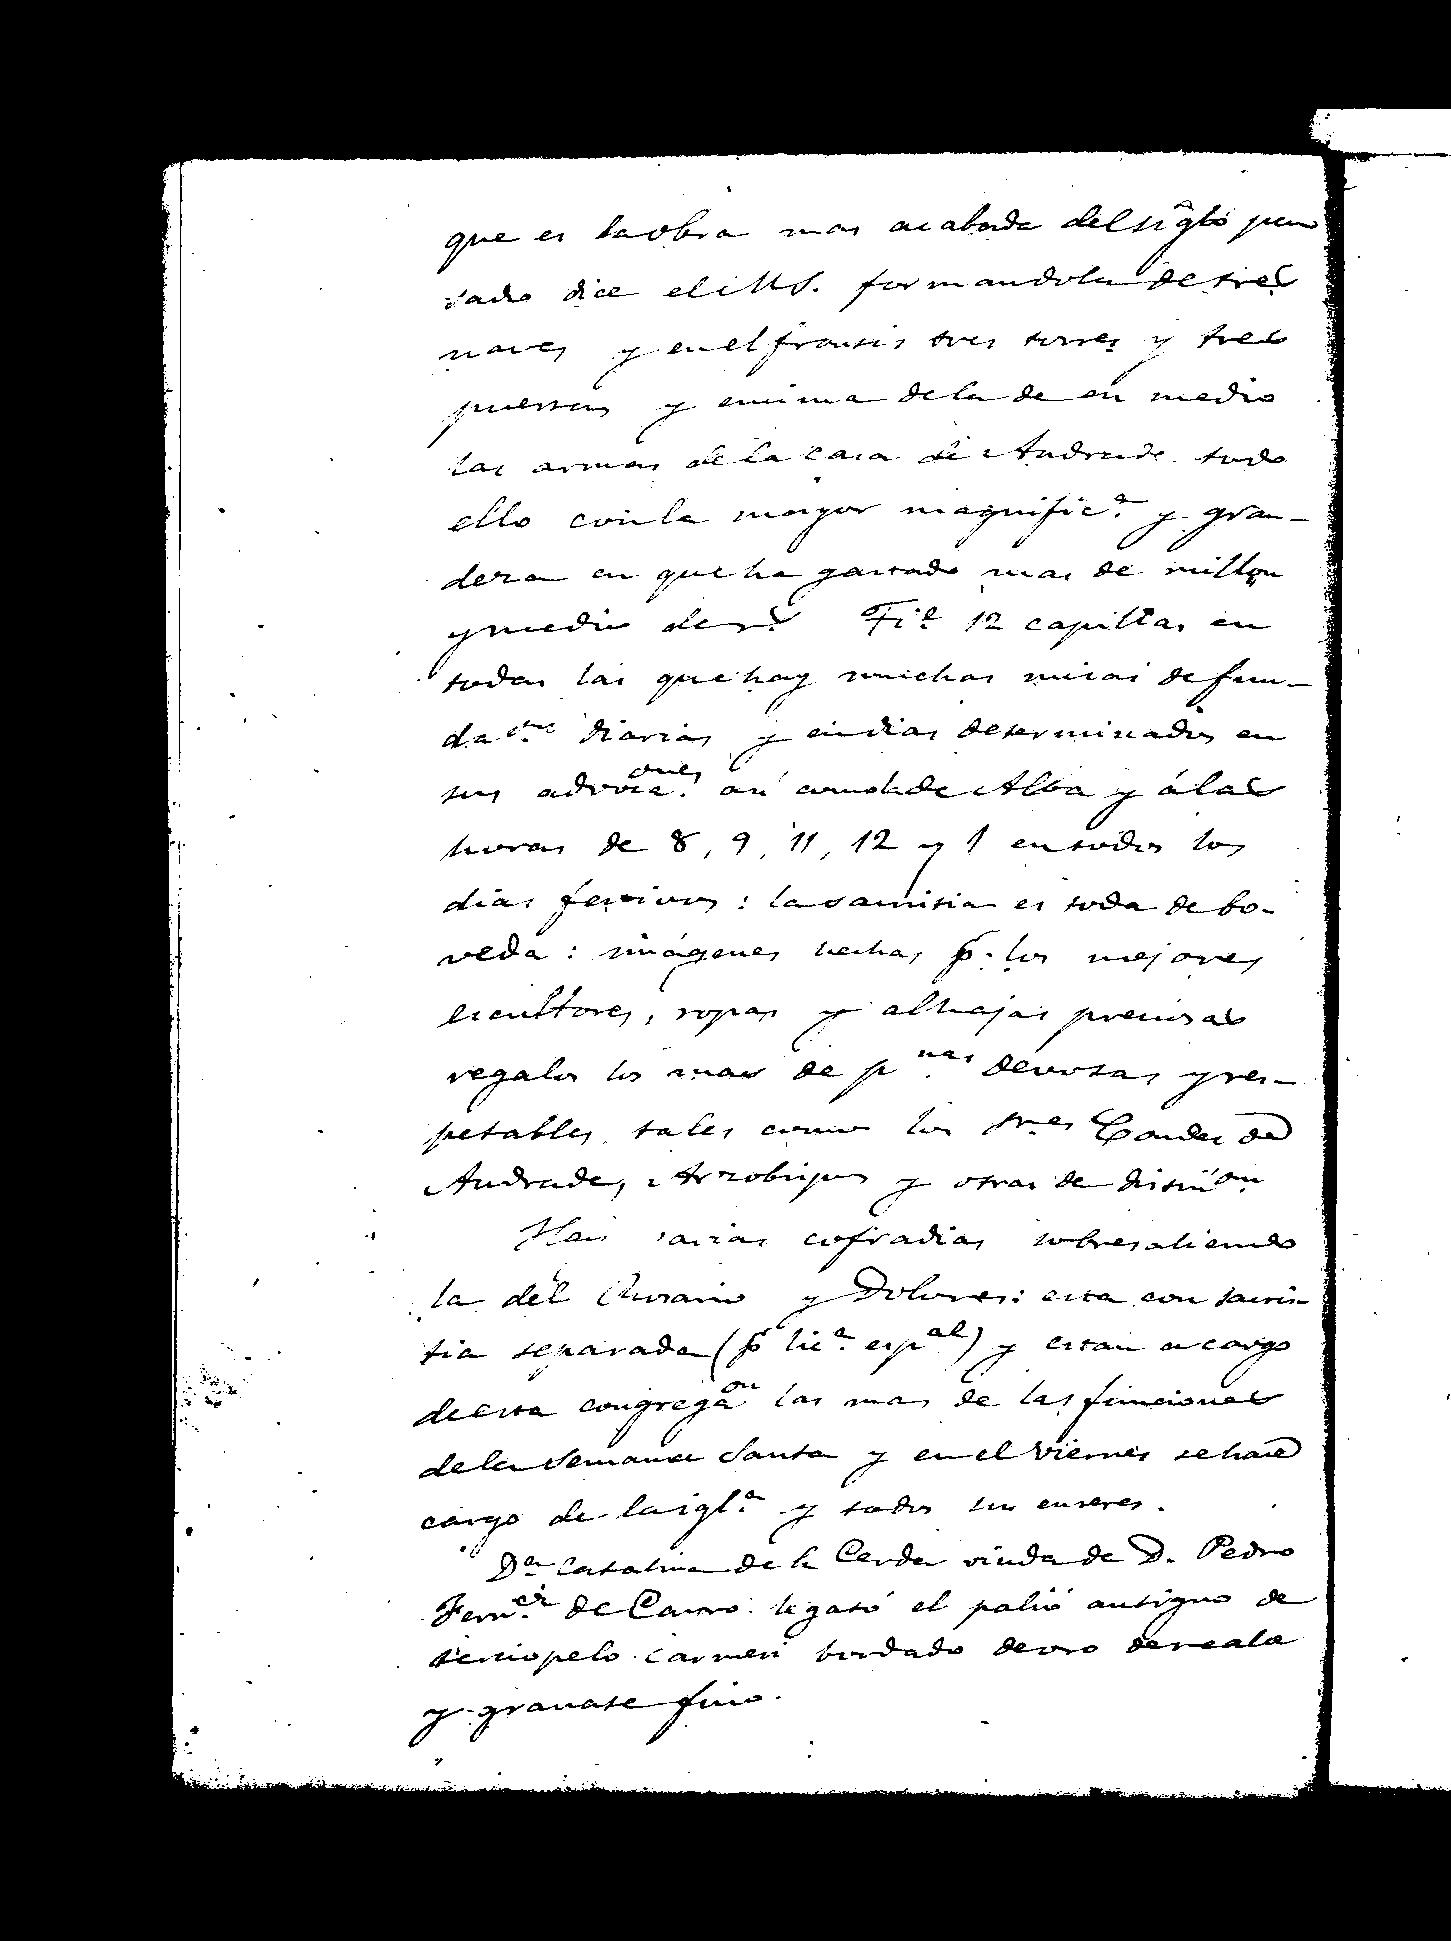 que es la obra mas acabada del siglo pen
sado dice el MS. formandola de tres
naves y en el frontis tres torres y tres
puertas y encima de la de en medio
las armas de la casa de Andrade todo
ello con la mayor magnific.ª y gran-
deza en que ha gastado mas de millon
y medio de r.s 12 capillas en
todas las que hay muchas misas de fun-
da.ones diarias y en dias determinados en
sus advoca.ones así como la de Alba y á las
horas de 8, 9, 11, 12 y 1 en todos los
dias festivos: la sacristia es toda de bo-
veda: imágenes hechas p.r los mejores
escultores, ropas y alhajas preciosas
regalos los mas de p.nas devotas y res-
petables, tales como los Sr.es Condes de
Andrade, Arzobispos y otras de distin.on
Hai varias cofradias sobresaliendo
la del Rosario y Dolores: esta con sacris-
tia separada (p.r lic.ª esp.al) y estan a cargo
de esta congrega.on las mas de las funciones
de la Semana Santa y en el Viernes se hace
cargo de la igl.ª y todos sus enseres.
D.ª Catalina de la Cerda viuda de D. Pedro
Fern.ez de Castro legató el palio antiguo de
terciopelo carmesi bordado de oro de realce
y granate fino.